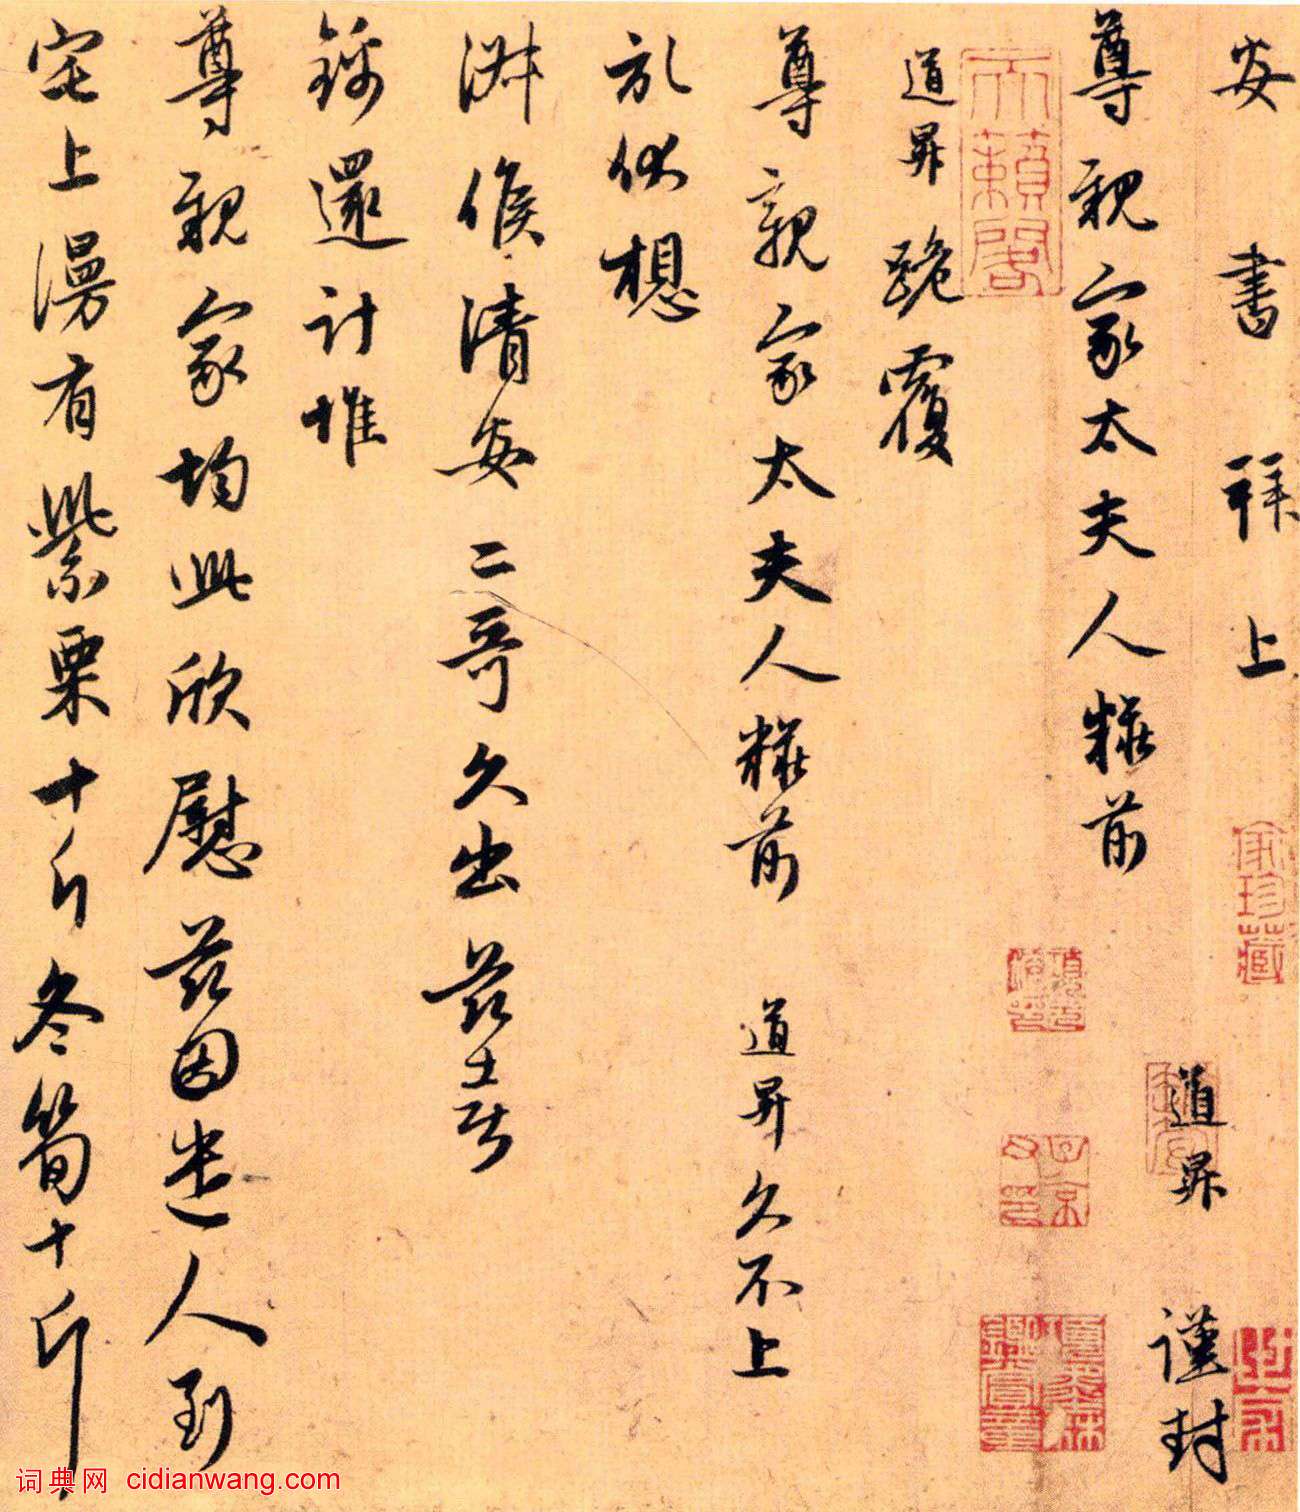 安書拜上
道昇謹封
尊親家太夫人粧前
道昇跪覆
尊親家太夫人粧前 道昇久不上
狀伏想
淋候清安二哥久出茲喜
錦還計惟
尊親家均此欣慰茲因遣人到
宅上謾有紫栗十斤冬筍十斤
天籟閣
家珍藏
词典网 cidianwang.com